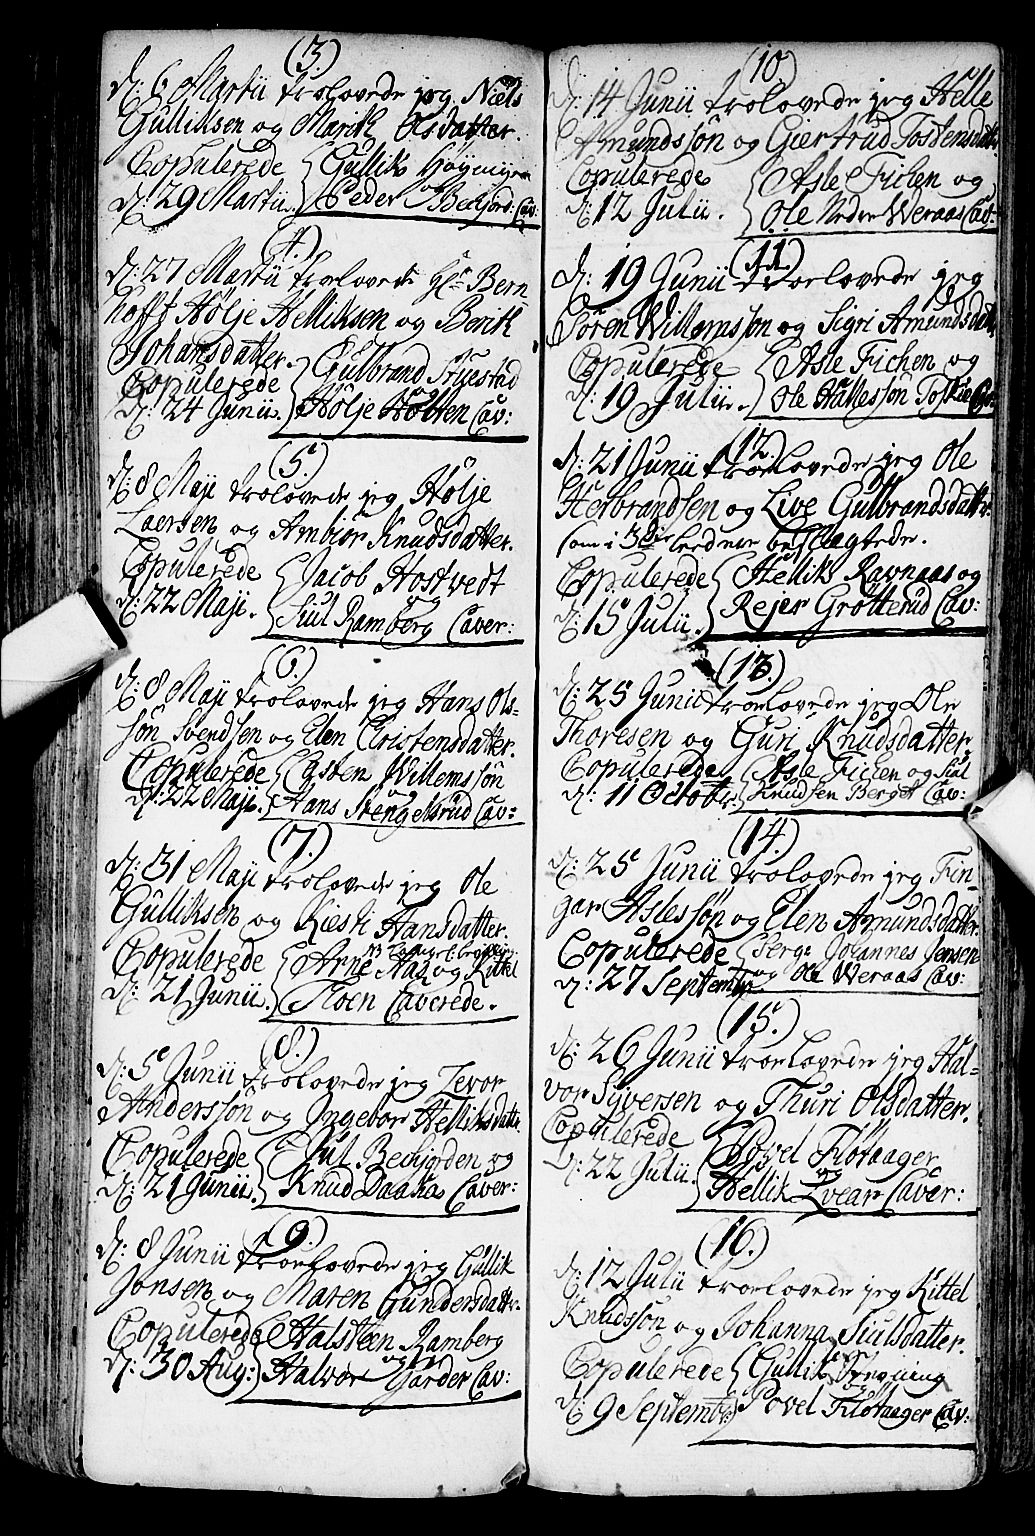 (3.)
d: 6 Martii trolovede jeg Niels
Gulliksen og Marik Olsdatter.
Copulerede { Gullik Høymyer
d: 29 Martii. { Peder Bechjord: Cav:
(4.)
d: 27 Martii troelovede Hr Bern-
hofft Hølje Helliksen og Berik
Johansdatter.
Copulerede { Gulbrand Struestad
d: 24 Junii. { Hølje Holten Cav:
(5.)
d: 8 Maji trolovede jeg Hølje
Laersen og Ambior Knudsdatter.
Copulerede { Jacob Hostvedt
d: 22 Maji. { og Siul Ramberg Caver:
(6.)
d: 8 Maji trolovede jeg Hans Ols-
søn Svendsen og Elen Cristensdatter.
Copulerede { Casten Willemssøn
d: 22 Maji. { og Hans Stengelsrud Cav:
(7.)
d: 31 Maji trolovede jeg Ole
Gulliksen og Kiesti Hansdatter.
Copulerede { Arne Aas og Kittel
d: 21 Junii. { Floen Caverede.
(8.)
d: 5 Junii trolovede jeg Tevor
Anderssøn og Ingebor Helliksdatter
Copulerede { Jul Bechjorden og
d: 21 Junii. { Knud Daaka Caver:
(9.)
d: 8 Junii troelovede jeg Gullik
Jonsen og Maren Gundersdatter.
Copulerede { Halsteen Ramberg
d: 30 Aug: { Halvor og Garder Cav:
(10.)
d: 14 Junii trolovede jeg Helle
Amundssøn og Giertrud Tostensdatter
Copulerede { Asle Fichen og
d: 12 Julii. { Ole Nedre Weraas Cav:
(11.)
d: 19 Junii troelovede jeg
Søren Willemssøn og Sigri Amundsdatter
Copulerede { Asle Fichen og
d: 19 Julii. { Ole Hallessøn
(12.)
d: 21 Junii troelovede jeg Ole
Herbrandsen og Live Gulbrandsdatter.
som i 3die leed ere beslægtede.
Copulerede { Hellik Ravnaas og
d: 15 Julii. { Rejer Grotterud Cav:
(13.)
d: 25 Junii troelovede jeg Ole
Thoresen og Guri Knudsdatter.
Copulerede { Asle Fichen og Siul
d: 11 Octobr { Knudsen Berget Cav:
(14.)
d: 25 Junii troelovede jeg Fin-
gar Aslessøn og Elen Amundsdatter.
Copulerede { Serg: Johannes Jensen
d: 27 Septembr { og Ole Weraas Cav:
(15.)
d: 26 Junii troelovede jeg Hal-
vor Syversen og Thuri Olsdatter.
Copulerede { Povel Fløtaager
d: 22 Julii. { og Hellik Qvear Caver:
(16.)
d: 12 Julii troelovede jeg Kittel
Knudssøn og Johanna Siulsdatter.
Copulerede { Gullik Tvevning
d: 9 Septembr { og Povel Fløtaager Cav: